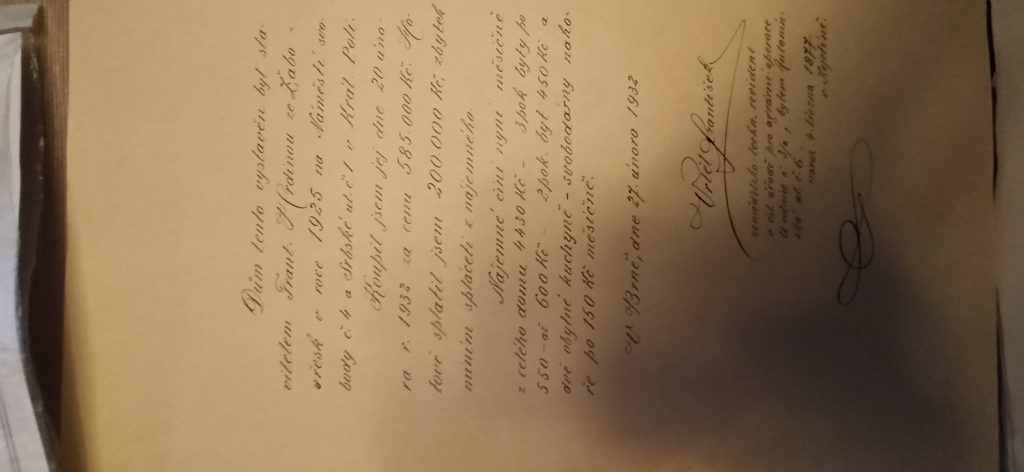 Dům tento vystavěn byl sta-
vitelem Frant. ze Žabo-
vřesk v roce na Náměstí svo-
body č. 4 a Srbské ul. č. 1 v Král. Poli.
Koupil jsem jej dne 20 úno-
ra r. 1932 za cenu 585.000 Kč. Ho-
tově splatil jsem 200 000 Kč, zbytek
míním spláceti z nájemného.
Nájemné činí nyní měsíčně
z celého domu 4430 Kč - 3pok. byty po
550 - až 600 Kč - 2pok. byt 450 Kč a
dvě obytné kuchyně - svobodárny naho-
ře po 150 Kč měsíčně.
V Brně, dne 27. února 1932
František
revident
naroz. 4 března 1877